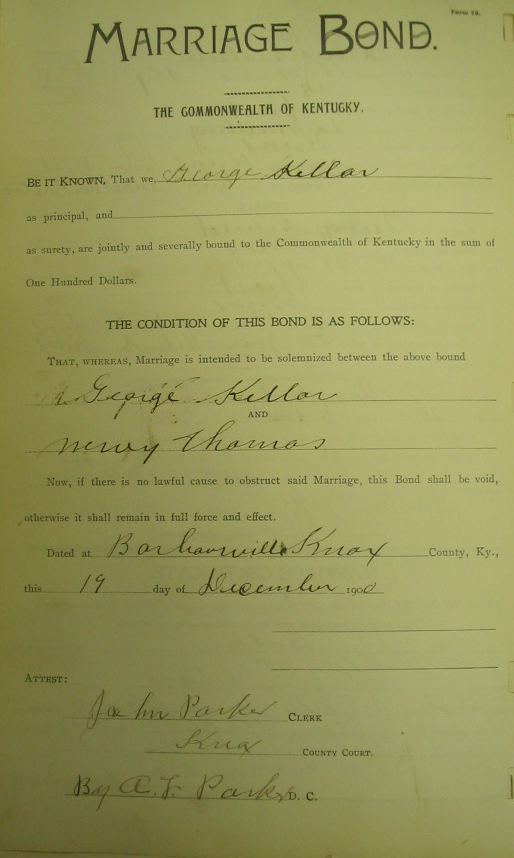 Form 78.
MARRIAGE BOND.
THE COMMONWEALTH OF KENTUCKY.
BE IT KNOWN, That we, George Kellar
as principal, and
as surety, are jointly and severally bound to the Commonwealth of Kentucky in the sum of
One Hundred Dollars.
THE CONDITION OF THIS BOND IS AS FOLLOWS:
THAT, WHEREAS, Marriage is intended to be solemnized between the above bound
George Kellar
AND
Nervy Thomas
Now, if there is no lawful cause to obstruct said Marriage, this Bond shall be void,
otherwise it shall remain in full force and effect.
Dated at Barbourville Knox County, Ky.,
this 19 day of December 1900
ATTEST:
John Parker CLERK
Knox COUNTY COURT.
By A. F. Parker D. C.